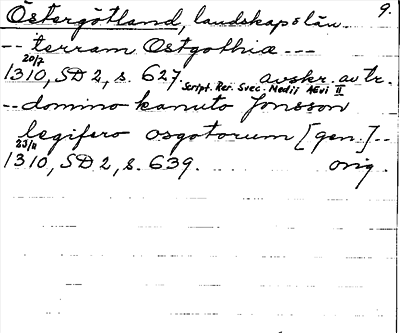 Östergötland, landskap o län. 9.
-- terram Ostgothiæ ---
20/7
1310, SD 2, s. 627. avskr. av tr.
Script. Rer. Svec. Medii AEvi II
-- domino kanuto Jonsson
legifero osgotorum [gen.] --
23/11
1310, SD 2, s. 639. orig.